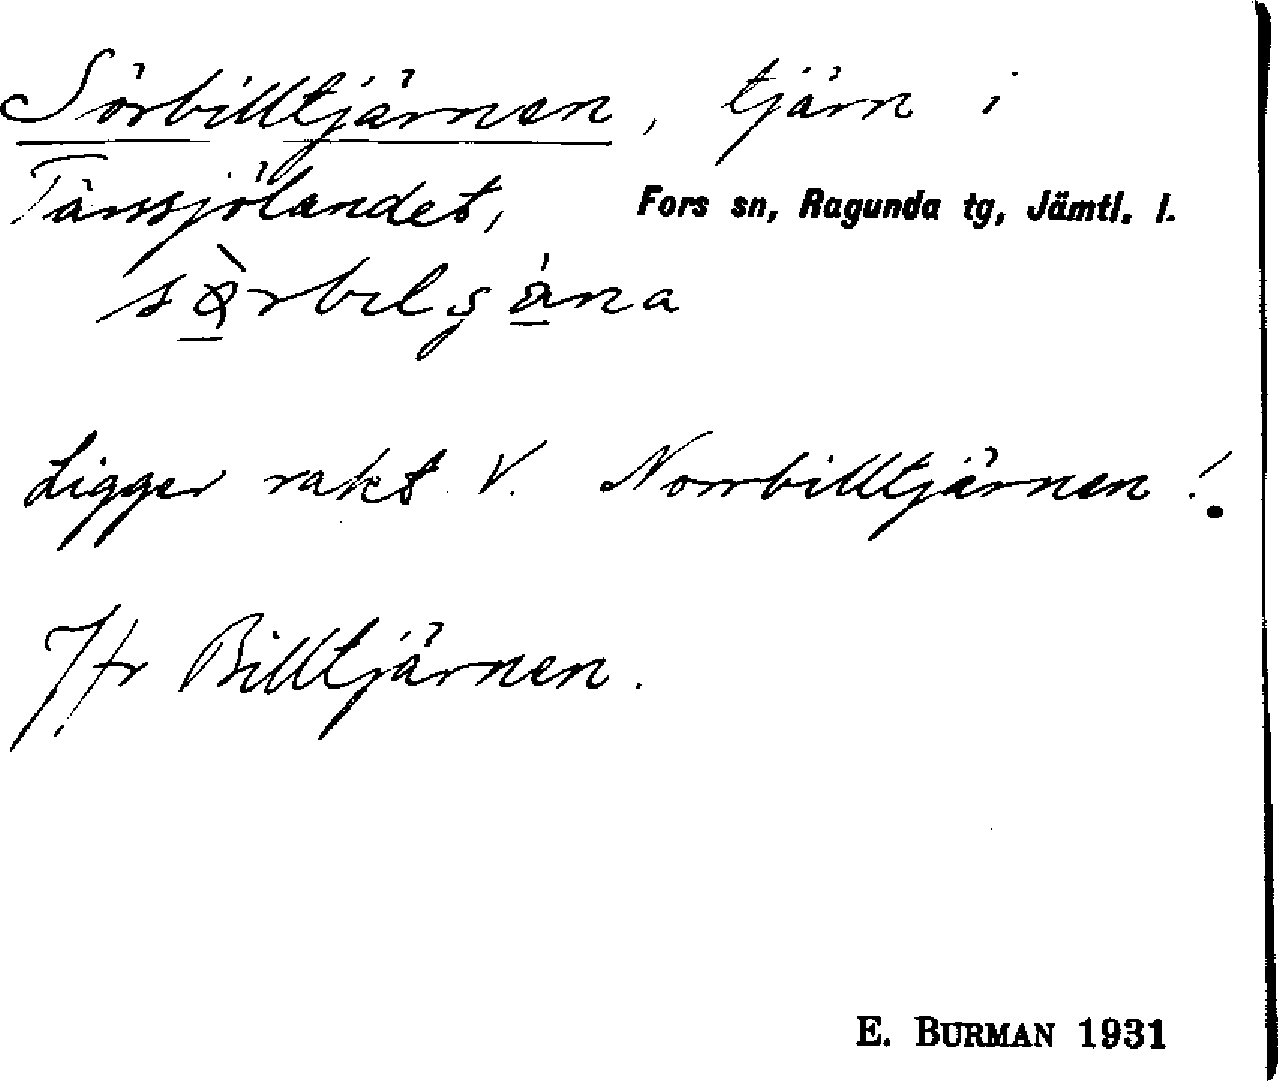 Sörbilltjärnen, tjärn i
Tänsjölandet, Fors sn, Ragunda tg, Jämtl. l.
Ligger rakt V. Norrbilltjärnen !
Jfr Billtjärnen.
E. BURMAN 1931